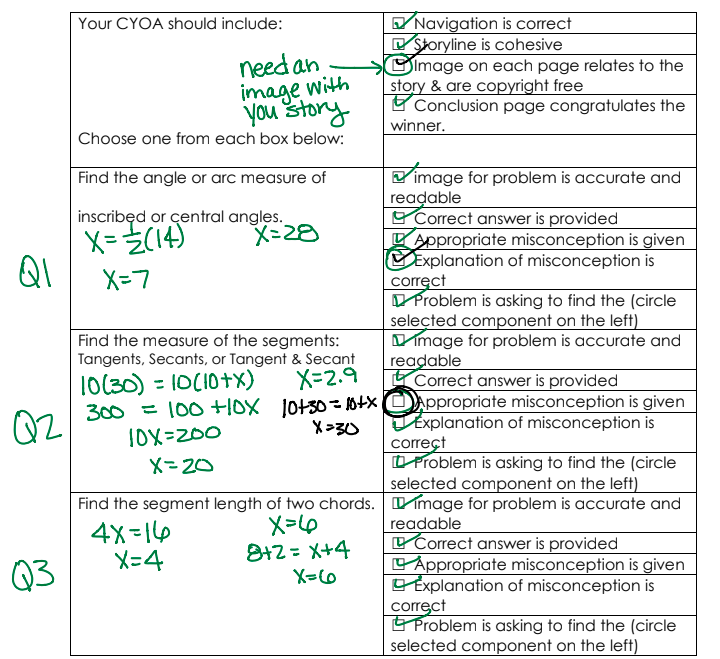 Your CYOA should include:
need an
image with
you story
Choose one from each box below:
☑ Navigation is correct
☑ Storyline is cohesive
☑ Image on each page relates to the
story & are copyright free
☑ Conclusion page congratulates the
winner.
Q1
Find the angle or arc measure of
inscribed or central angles.
X = 1/2(14)
X = 7
X = 28
☑ image for problem is accurate and
readable
☑ Correct answer is provided
☑ Appropriate misconception is given
☑ Explanation of misconception is
correct
☑ Problem is asking to find the (circle
selected component on the left)
Q2
Find the measure of the segments:
Tangents, Secants, or Tangent & Secant
10(30) = 10(10+x)
300 = 100 + 10X
10X = 200
X = 20
X = 2.9
10+30 = 10+x
x = 30
☑ image for problem is accurate and
readable
☑ Correct answer is provided
☐ Appropriate misconception is given
☑ Explanation of misconception is
correct
☑ Problem is asking to find the (circle
selected component on the left)
Q3
Find the segment length of two chords.
4X = 16
X = 4
X = 6
8+2 = X+4
X = 6
☑ image for problem is accurate and
readable
☑ Correct answer is provided
☑ Appropriate misconception is given
☑ Explanation of misconception is
correct
☑ Problem is asking to find the (circle
selected component on the left)